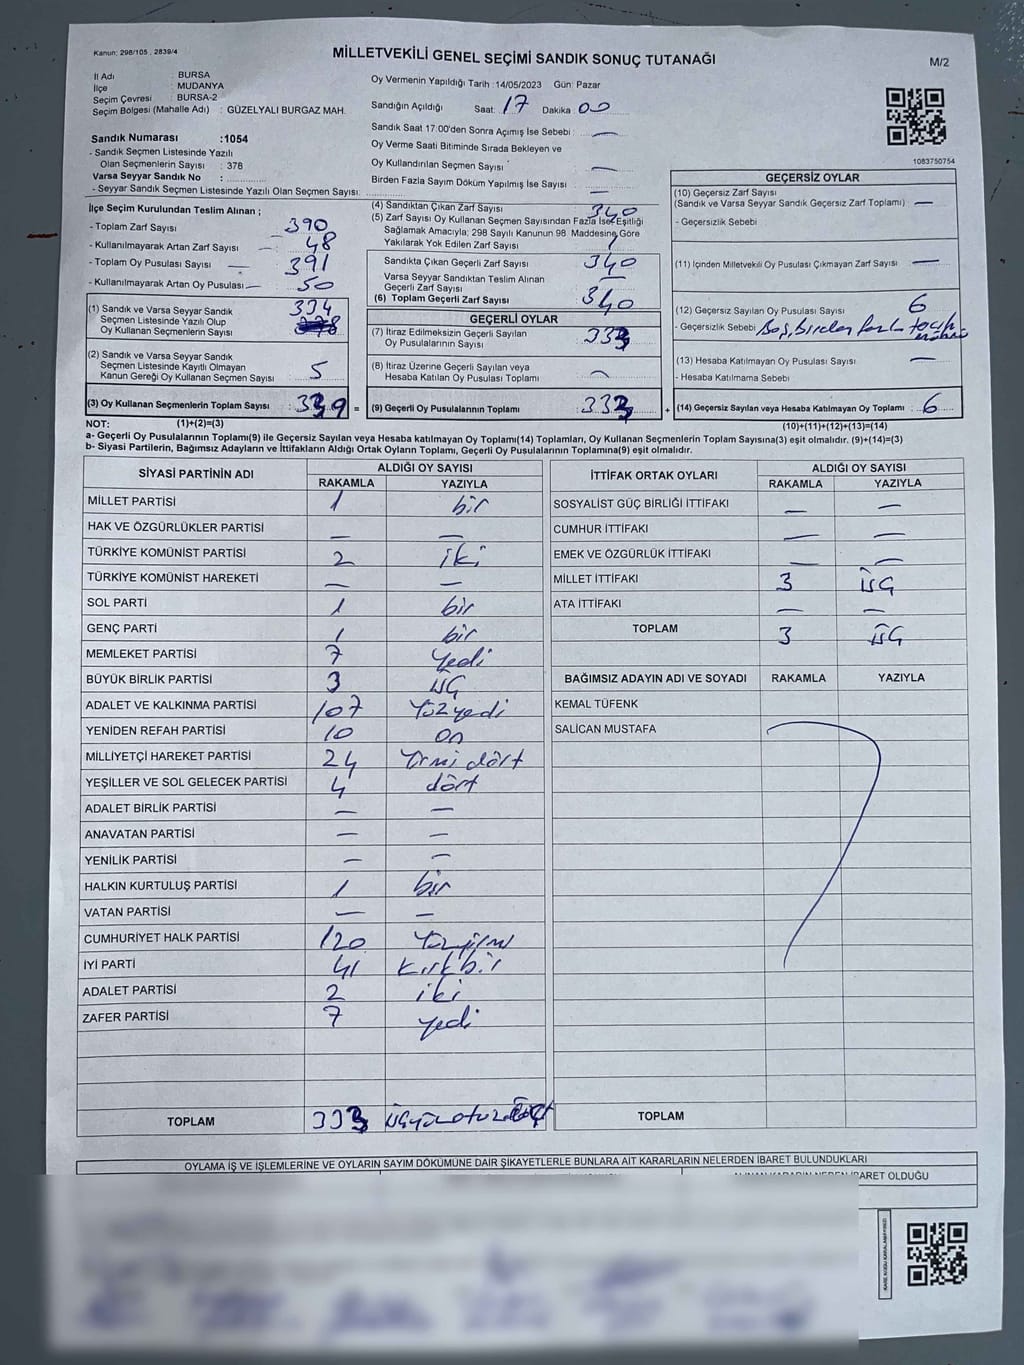 Kanun: 298/105 , 2839/4
MİLLETVEKİLİ GENEL SEÇİMİ SANDIK SONUÇ TUTANAĞI
M/2
İl Adı : BURSA
İlçe : MUDANYA
Seçim Çevresi : BURSA-2
Seçim Bölgesi (Mahalle Adı) : GÜZELYALI BURGAZ MAH.
Oy Vermenin Yapıldığı Tarih : 14/05/2023 Gün: Pazar
Sandığın Açıldığı Saat: 17 Dakika 00
Sandık Saat 17:00'den Sonra Açımış İse Sebebi : —
Oy Verme Saati Bitiminde Sırada Bekleyen ve
Oy Kullandırılan Seçmen Sayısı : —
Birden Fazla Sayım Döküm Yapılmış İse Sayısı : —
1083750754
Sandık Numarası :1054
- Sandık Seçmen Listesinde Yazılı
Olan Seçmenlerin Sayısı : 378
Varsa Seyyar Sandık No :
- Seyyar Sandık Seçmen Listesinde Yazılı Olan Seçmen Sayısı:
İlçe Seçim Kurulundan Teslim Alınan ;
- Toplam Zarf Sayısı 390
- Kullanılmayarak Artan Zarf Sayısı 48
- Toplam Oy Pusulası Sayısı 391
- Kullanılmayarak Artan Oy Pusulası 50
(1) Sandık ve Varsa Seyyar Sandık
Seçmen Listesinde Yazılı Olup
Oy Kullanan Seçmenlerin Sayısı : 334
(2) Sandık ve Varsa Seyyar Sandık
Seçmen Listesinde Kayıtlı Olmayan
Kanun Gereği Oy Kullanan Seçmen Sayısı : 5
(3) Oy Kullanan Seçmenlerin Toplam Sayısı : 339 =
(4) Sandıktan Çıkan Zarf Sayısı 340
(5) Zarf Sayısı Oy Kullanan Seçmen Sayısından Fazla İse, Eşitliği
Sağlamak Amacıyla; 298 Sayılı Kanunun 98. Maddesine Göre
Yakılarak Yok Edilen Zarf Sayısı
Sandıkta Çıkan Geçerli Zarf Sayısı : 340
Varsa Seyyar Sandıktan Teslim Alınan
Geçerli Zarf Sayısı : —
(6) Toplam Geçerli Zarf Sayısı : 340
GEÇERLİ OYLAR
(7) İtiraz Edilmeksizin Geçerli Sayılan
Oy Pusulalarının Sayısı : 333
(8) İtiraz Üzerine Geçerli Sayılan veya
Hesaba Katılan Oy Pusulası Toplamı : —
(9) Geçerli Oy Pusulalarının Toplamı : 333 +
GEÇERSİZ OYLAR
(10) Geçersiz Zarf Sayısı
(Sandık ve Varsa Seyyar Sandık Geçersiz Zarf Toplamı) : —
- Geçersizlik Sebebi
(11) İçinden Milletvekili Oy Pusulası Çıkmayan Zarf Sayısı : —
(12) Geçersiz Sayılan Oy Pusulası Sayısı : 6
- Geçersizlik Sebebi Boş, Birden fazla
(13) Hesaba Katılmayan Oy Pusulası Sayısı : —
- Hesaba Katılmama Sebebi
(14) Geçersiz Sayılan veya Hesaba Katılmayan Oy Toplamı : 6
NOT: (1)+(2)=(3) (10)+(11)+(12)+(13)=(14)
a- Geçerli Oy Pusulalarının Toplamı(9) ile Geçersiz Sayılan veya Hesaba katılmayan Oy Toplamı(14) Toplamları, Oy Kullanan Seçmenlerin Toplam Sayısına(3) eşit olmalıdır. (9)+(14)=(3)
b- Siyasi Partilerin, Bağımsız Adayların ve İttifakların Aldığı Ortak Oyların Toplamı, Geçerli Oy Pusulalarının Toplamına(9) eşit olmalıdır.
SİYASİ PARTİNİN ADI ALDIĞI OY SAYISI
RAKAMLA YAZIYLA
MİLLET PARTİSİ 1 bir
HAK VE ÖZGÜRLÜKLER PARTİSİ — —
TÜRKİYE KOMÜNİST PARTİSİ 2 iki
TÜRKİYE KOMÜNİST HAREKETİ — —
SOL PARTİ 1 bir
GENÇ PARTİ 1 bir
MEMLEKET PARTİSİ 7 yedi
BÜYÜK BİRLİK PARTİSİ 3 üç
ADALET VE KALKINMA PARTİSİ 107 Yüzyedi
YENİDEN REFAH PARTİSİ 10 on
MİLLİYETÇİ HAREKET PARTİSİ 24 Yirmi dört
YEŞİLLER VE SOL GELECEK PARTİSİ 4 dört
ADALET BİRLİK PARTİSİ — —
ANAVATAN PARTİSİ — —
YENİLİK PARTİSİ — —
HALKIN KURTULUŞ PARTİSİ 1 bir
VATAN PARTİSİ — —
CUMHURİYET HALK PARTİSİ 120 Yüzyirmi
İYİ PARTİ 41 kırkbir
ADALET PARTİSİ 2 iki
ZAFER PARTİSİ 7 yedi
TOPLAM 333
İTTİFAK ORTAK OYLARI ALDIĞI OY SAYISI
RAKAMLA YAZIYLA
SOSYALİST GÜÇ BİRLİĞİ İTTİFAKI — —
CUMHUR İTTİFAKI — —
EMEK VE ÖZGÜRLÜK İTTİFAKI — —
MİLLET İTTİFAKI 3 üç
ATA İTTİFAKI — —
TOPLAM 3 üç
BAĞIMSIZ ADAYIN ADI VE SOYADI RAKAMLA YAZIYLA
KEMAL TÜFENK
SALİCAN MUSTAFA
TOPLAM
OYLAMA İŞ VE İŞLEMLERİNE VE OYLARIN SAYIM DÖKÜMÜNE DAİR ŞİKAYETLERLE BUNLARA AİT KARARLARIN NELERDEN İBARET BULUNDUKLARI
İBARET OLDUĞU